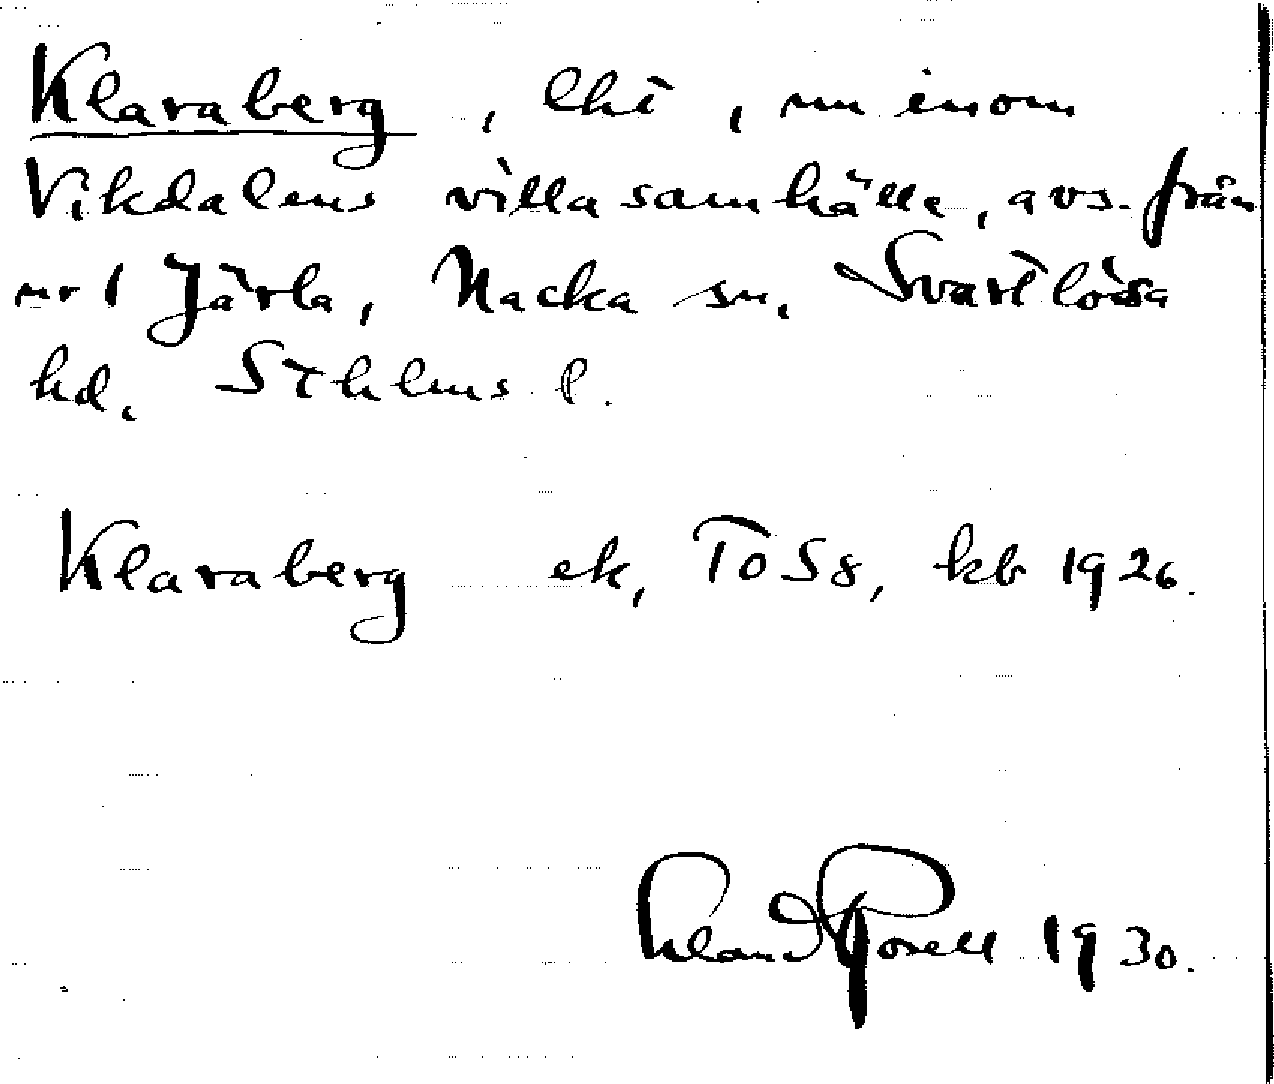 Klaraberg, lht, nu inom
Vikdalens villasamhälle, avs. från
nr 1 Järla, Nacka sn, Svartlösa
hd, Sthlms l.
Klaraberg ek, ToS8, kb 1926.
Roland Posell 1930.